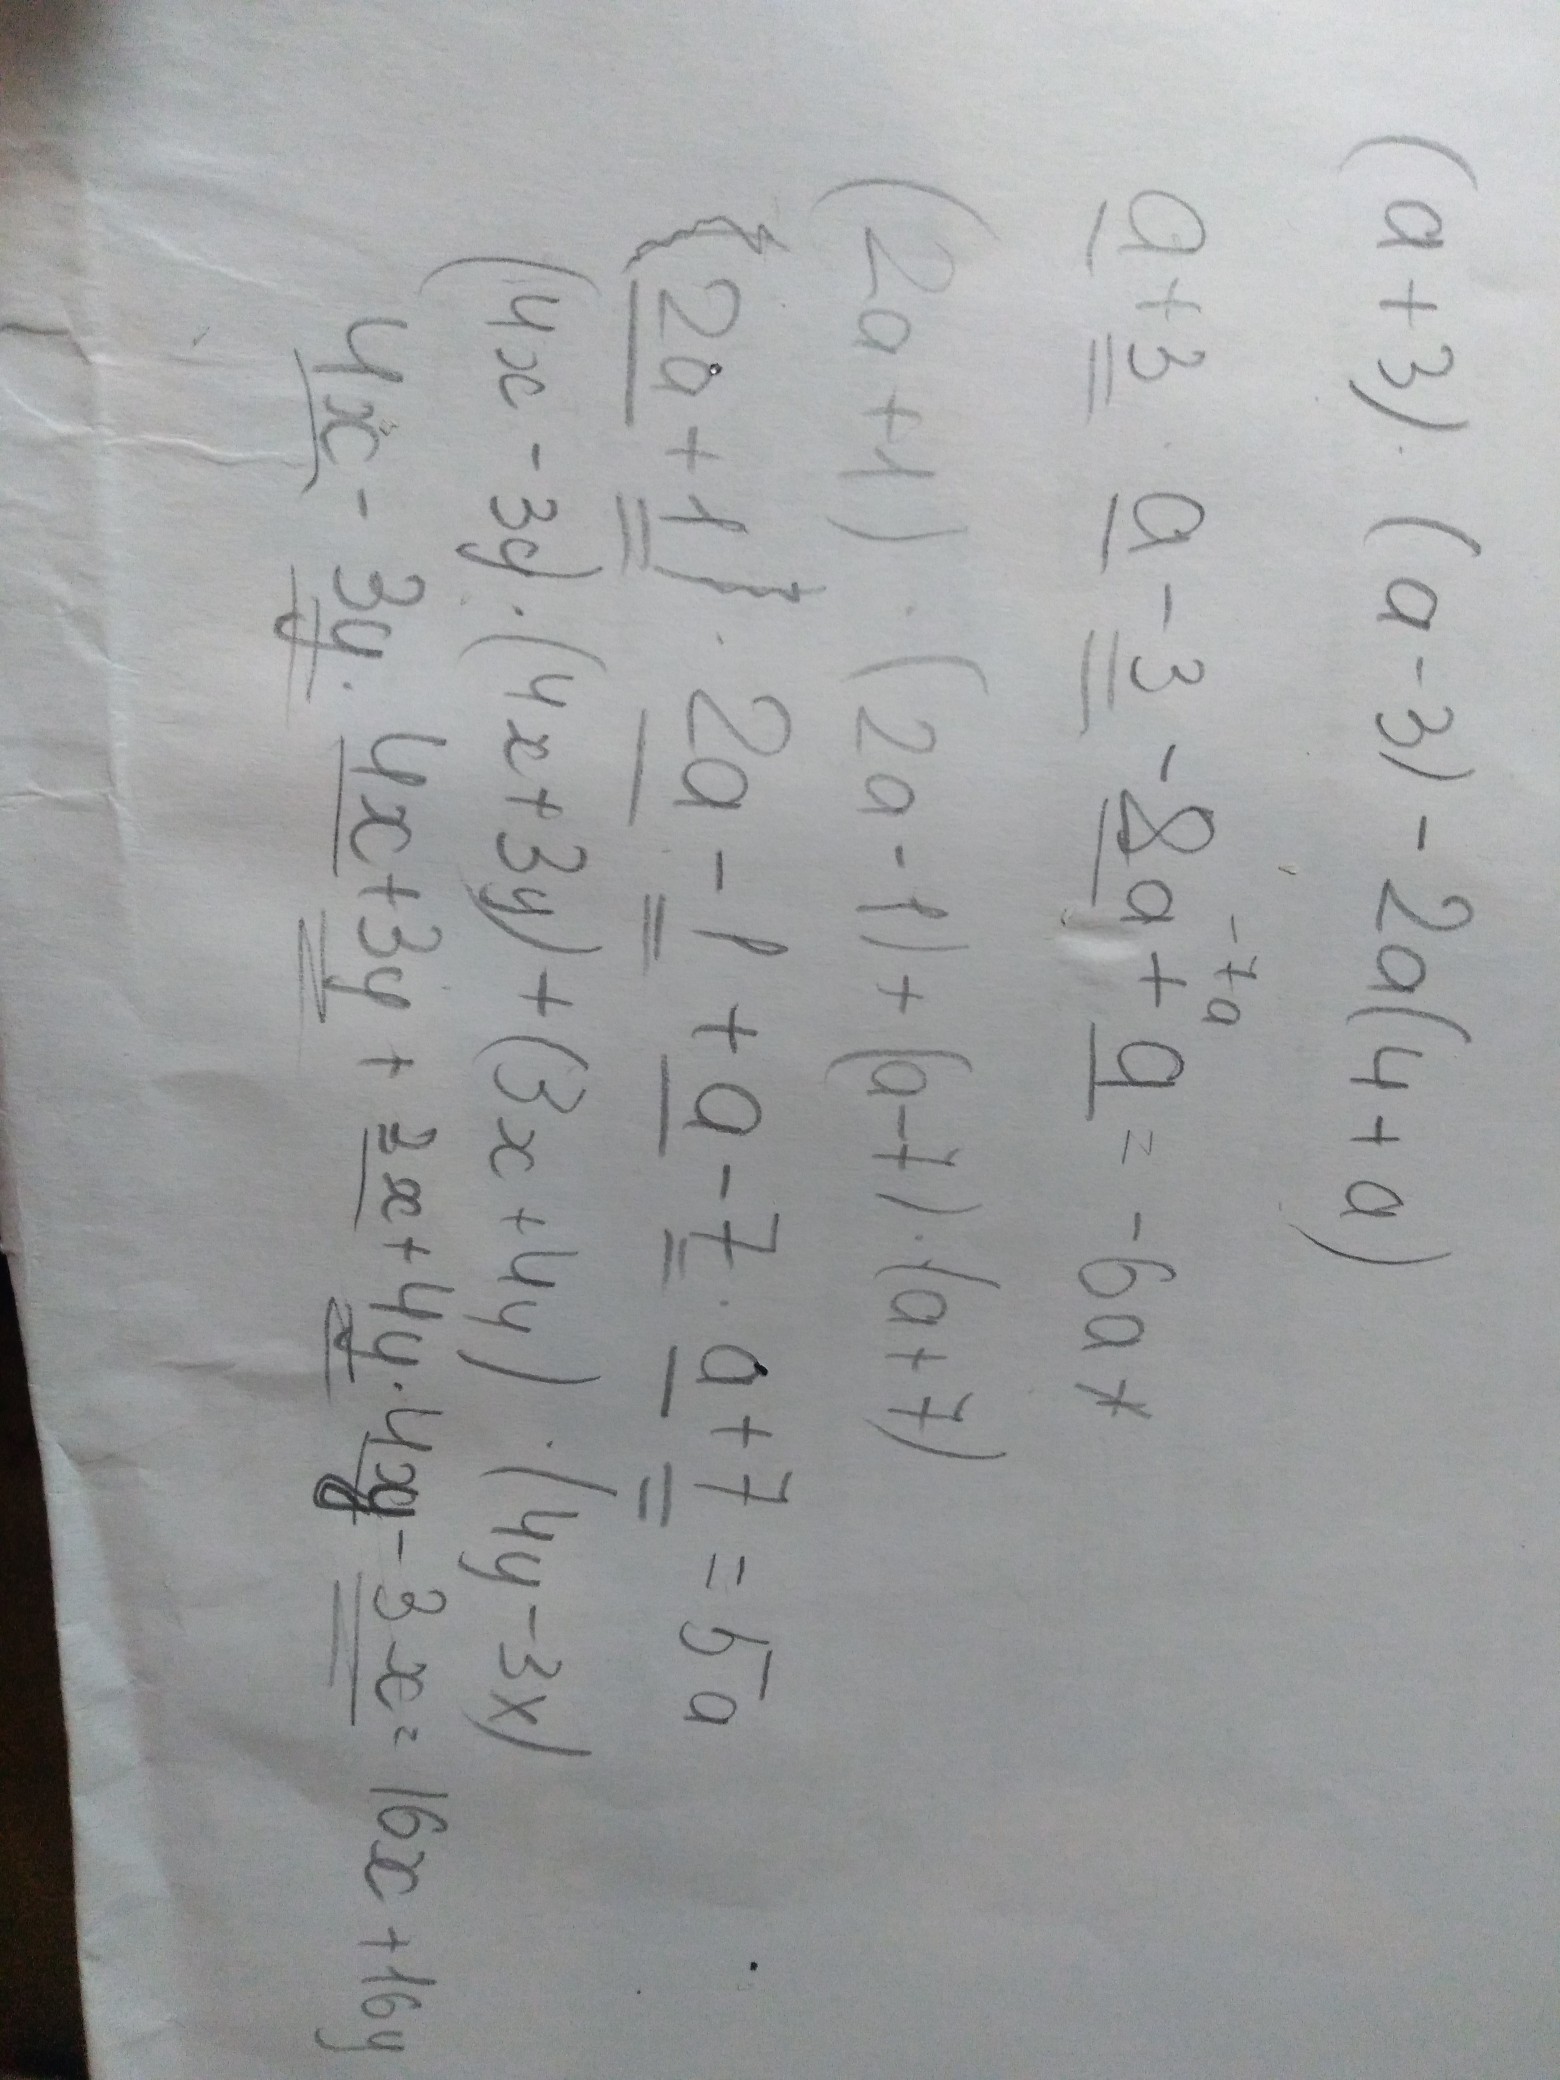 (a+3)·(a-3)-2a(4+a)
a+3·a-3-8a+a=-6a+
-7a
(2a+1)·(2a-1)+(a-7)·(a+7)
(2a+1)·2a-1+a-7·a+7=5a
(4x-3y)·(4x+3y)+(3x+4y)·(4y-3x)
4x-3y·4x+3y+3x+4y·4y-3x=16x+16y